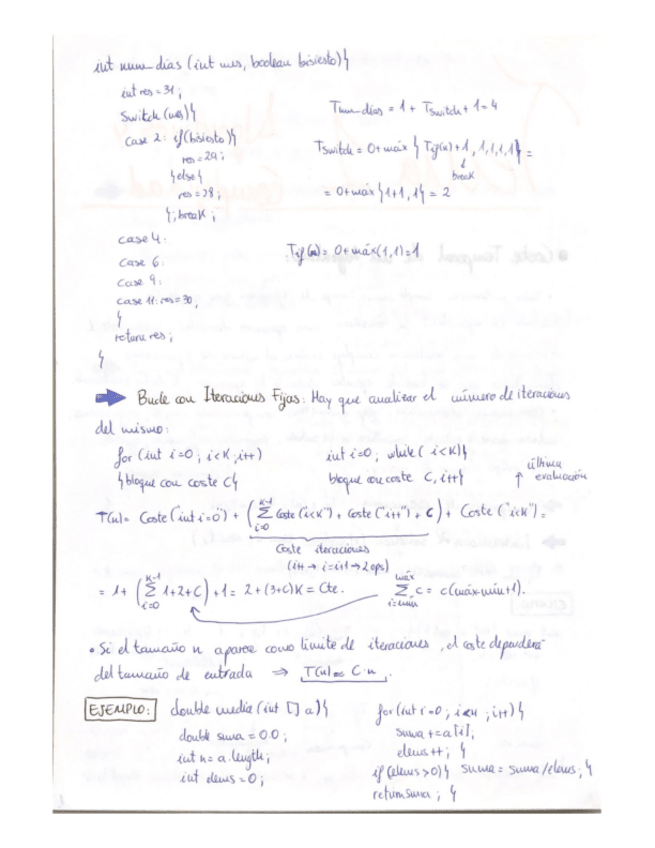 int num_dias (int mes, boolean bisiesto){
int res = 31;
Switch (mes){
case 2: if(bisiesto){
res = 29;
}else{
res = 28;
}; break;
case 4:
case 6:
case 9:
case 11: res = 30;
}
return res;
}
Tnum_dias = 1 + Tswitch + 1 = 4
Tswitch = 0 + máx { Tif(n)+1, 1,1,1,1} =
break
= 0 + máx {1+1, 1} = 2
Tif(n) = 0 + máx(1,1) = 1
Bucle con Iteraciones Fijas: Hay que analizar el número de iteraciones
del mismo:
for (int i=0; i<K; i++)
{bloque con coste C}
int i=0; while( i<K){
bloque con coste C, i++}
↑ última evaluación
T(n) = Coste("int i=0") + (∑ i=0 K-1 Coste("i<K") + Coste("i++") + C) + Coste("i<K") =
Coste iteraciones
(i++ → i=i+1 → 2 ops)
= 1 + (∑ i=0 K-1 1+2+C) + 1 = 2 + (3+C)K = Cte.
∑ i=min máx C = C(máx-mín+1).
• Si el tamaño n aparece como límite de iteraciones, el coste dependerá
del tamaño de entrada ⇒ T(n) ≈ C·n.
EJEMPLO:
double media (int [] a){
double suma = 0.0;
int n = a.length;
int elems = 0;
for(int i=0; i<n; i++){
suma += a[i];
elems++; }
if (elems>0){ suma = suma/elems; }
return suma; }